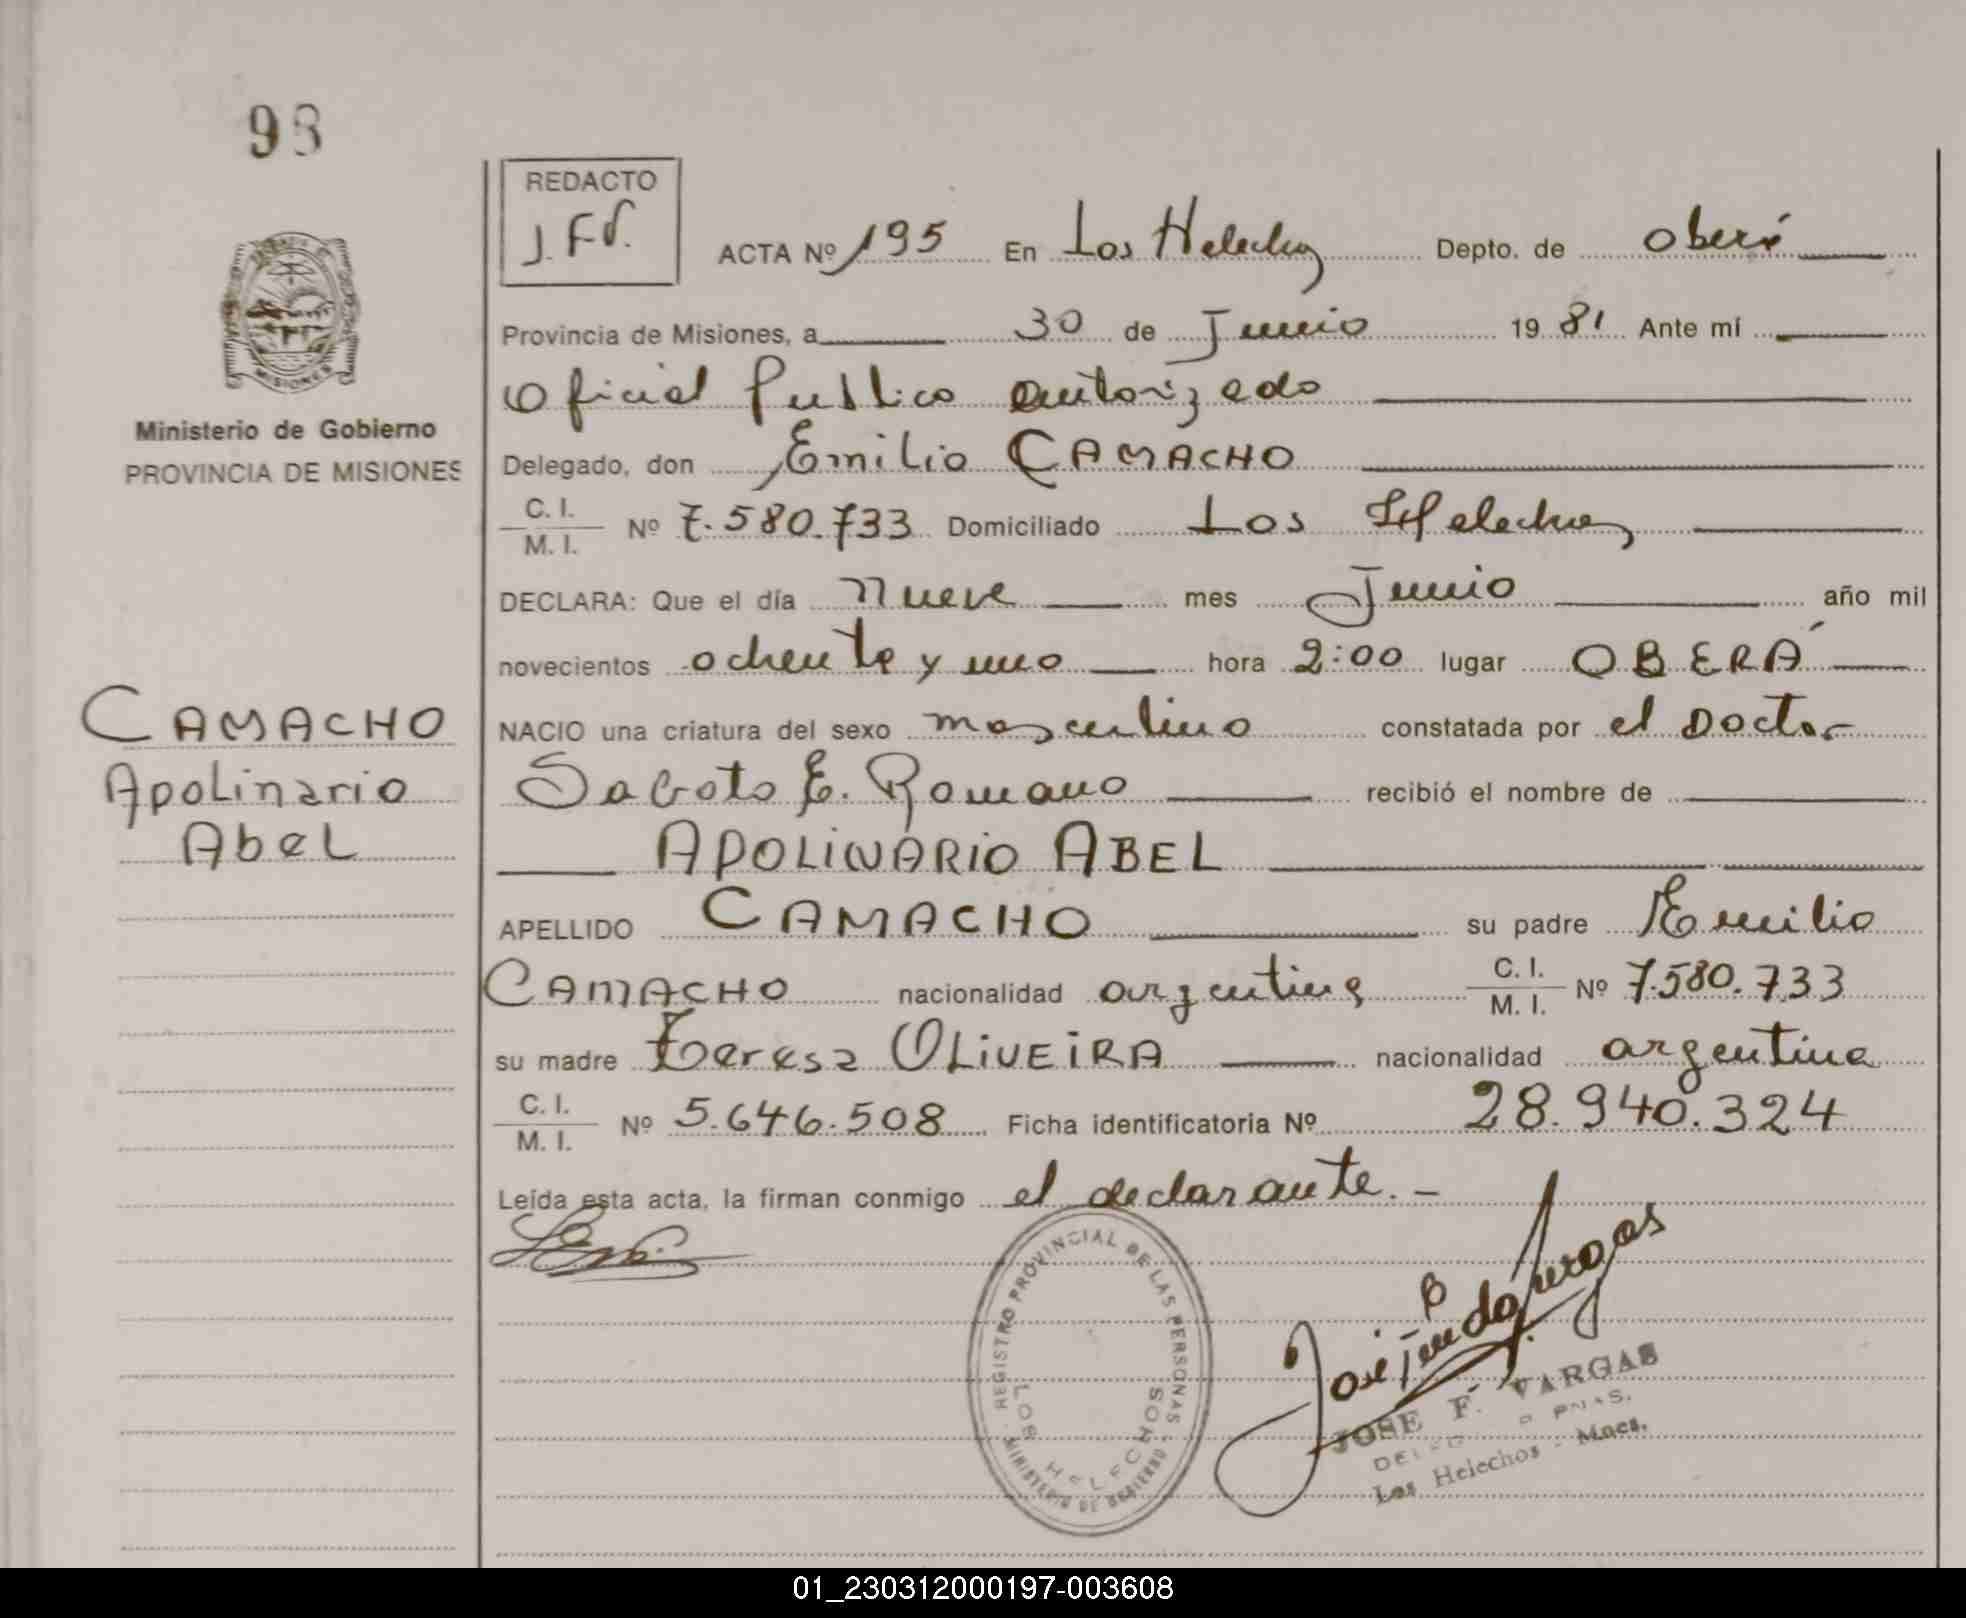 98
REDACTO
J.F.V.
ACTA Nº 195 En Los Helechos Depto. de oberá
Provincia de Misiones, a 30 de Junio 19 81 Ante mí
Oficial Publico autorizado
Ministerio de Gobierno
PROVINCIA DE MISIONES
Delegado, don Emilio CAMACHO
C. I. / M. I. Nº 7.580.733 Domiciliado Los Helechos
DECLARA: Que el día nueve mes Junio año mil
novecientos ochenta y uno hora 2:00 lugar OBERÁ
CAMACHO
Apolinario
Abel
NACIO una criatura del sexo masculino constatada por el Doctor
Saboto E. Romano recibió el nombre de
APOLINARIO ABEL
APELLIDO CAMACHO su padre Emilio
CAMACHO nacionalidad argentina C. I. / M. I. Nº 7.580.733
su madre Teresa OLIVEIRA nacionalidad argentina
C. I. / M. I. Nº 5.646.508 Ficha identificatoria Nº 28.940.324
Leída esta acta, la firman conmigo el declarante. -
REGISTRO PROVINCIAL DE LAS PERSONAS
LOS HELECHOS
MINISTERIO DE GOBIERNO
JOSE F. VARGAS
Los Helechos - Mnes.
01_230312000197-003608